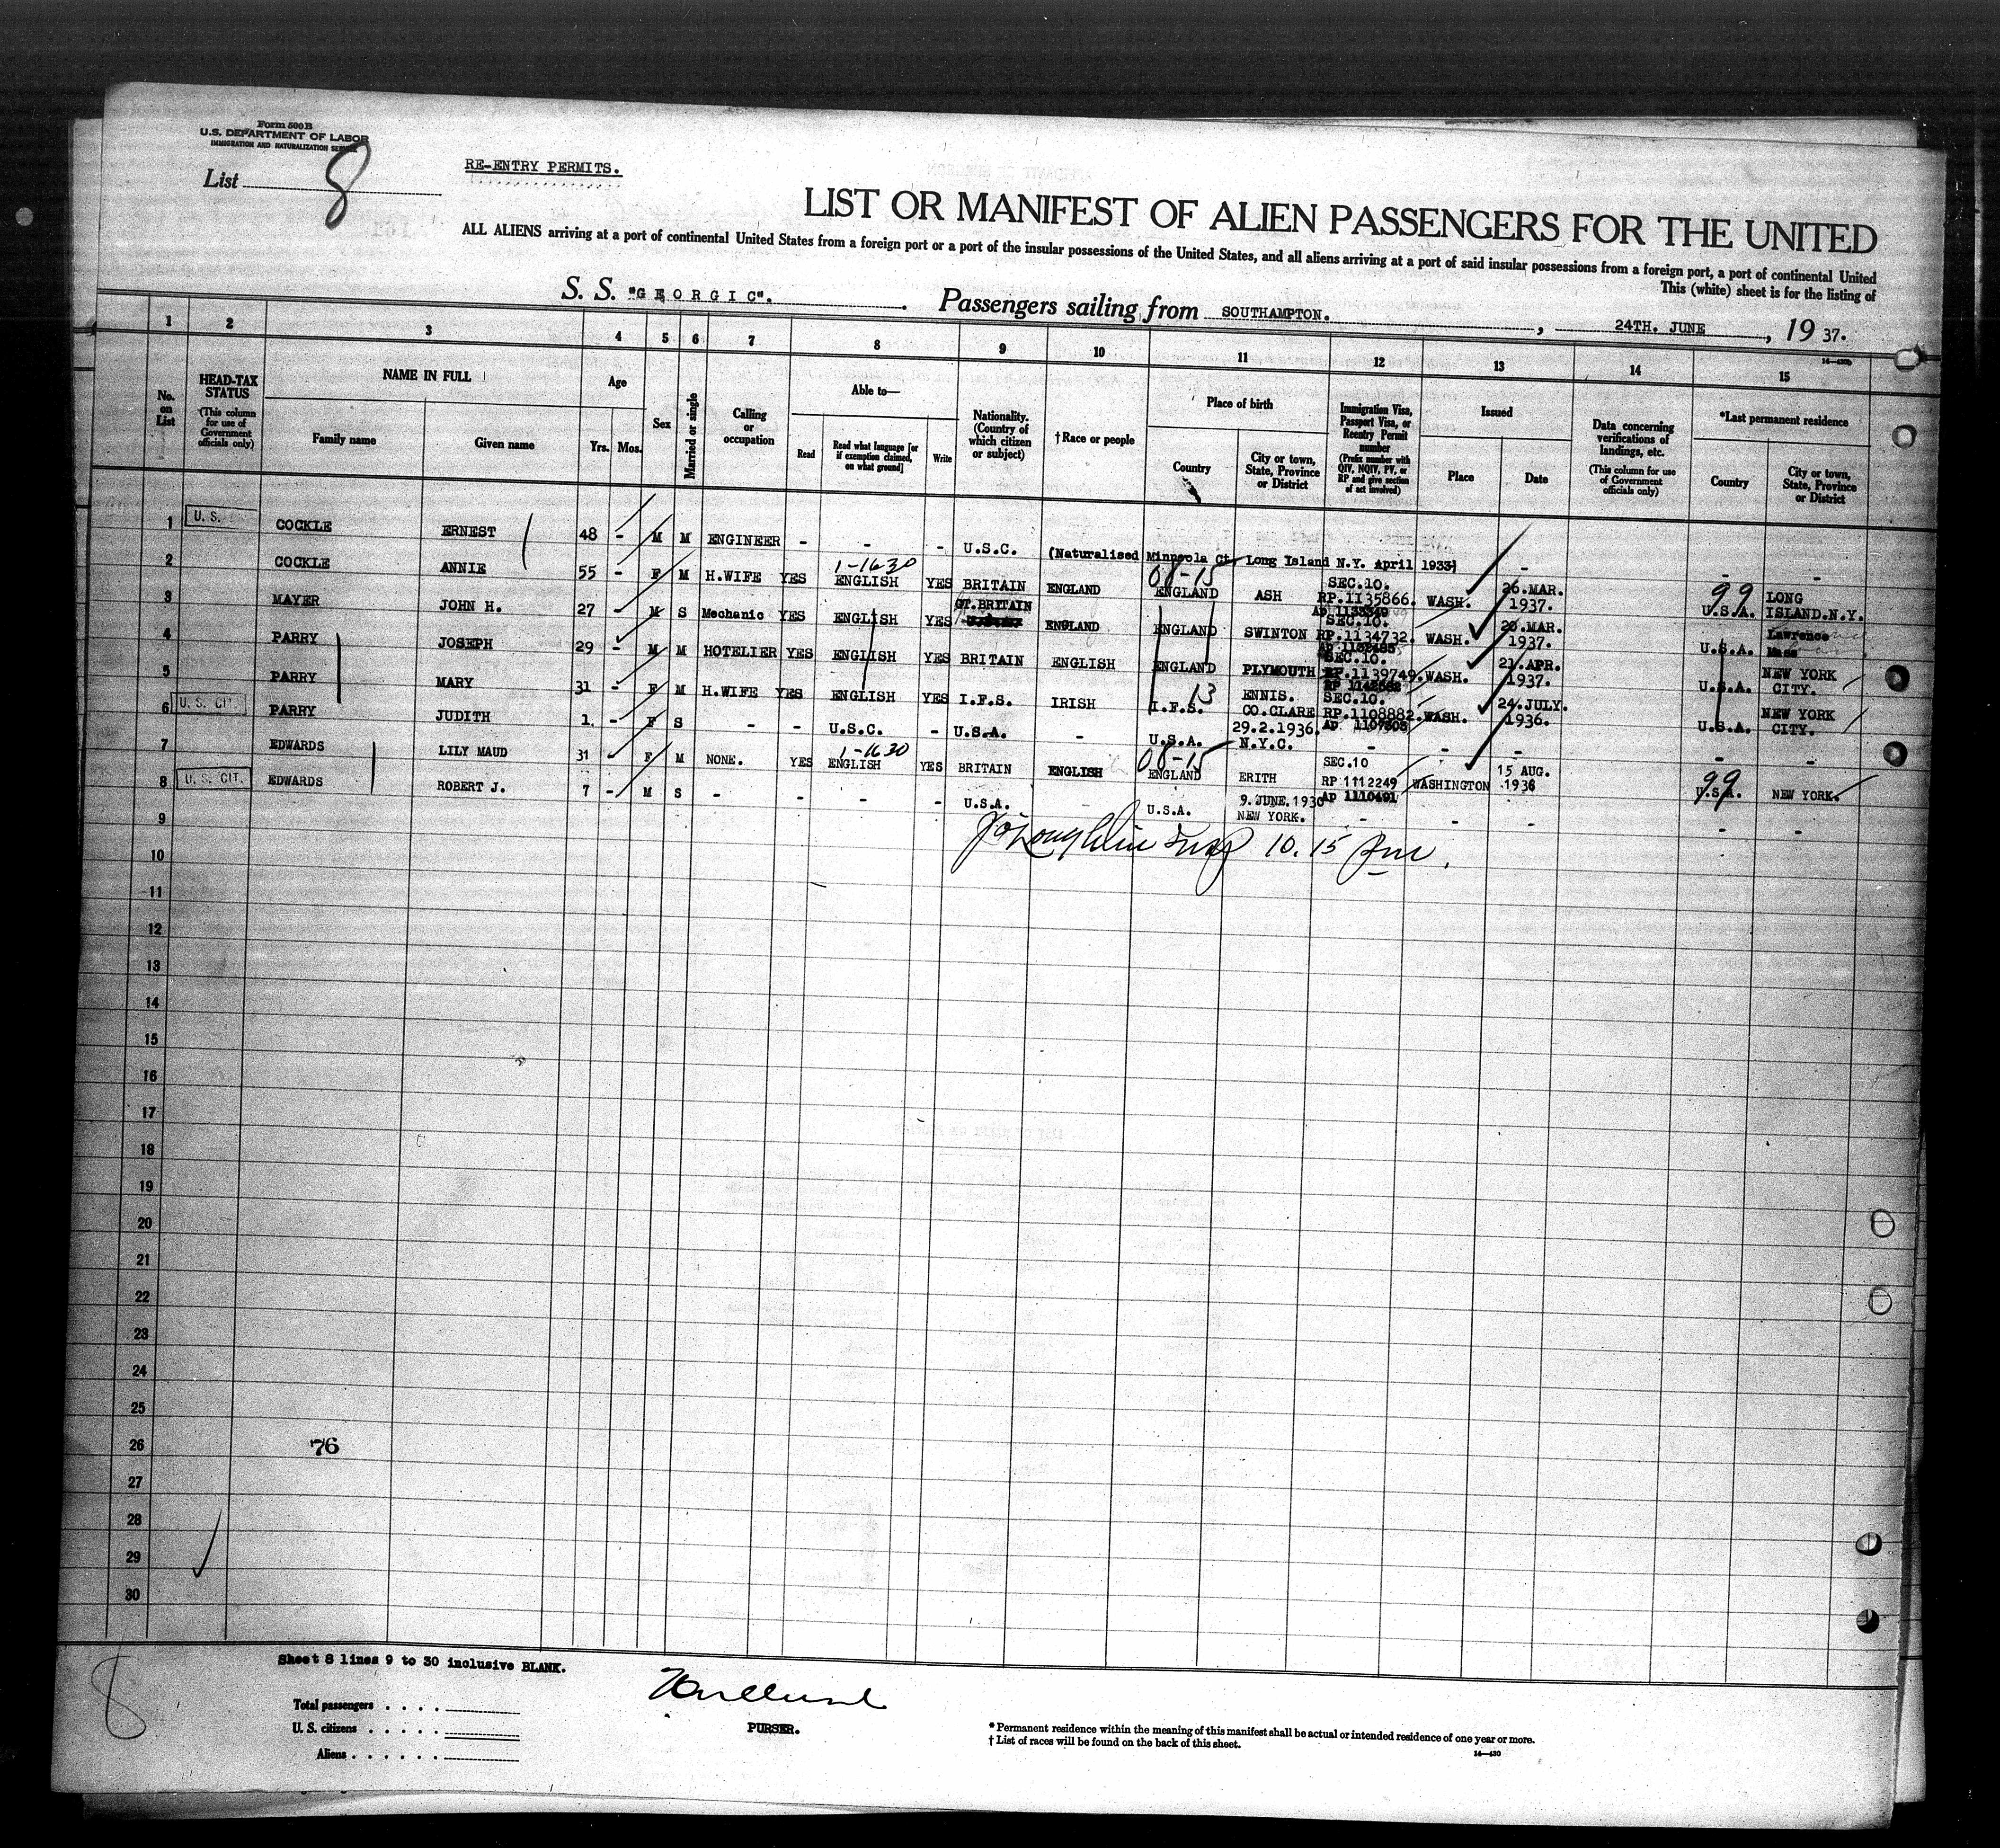 Form 500 B
U.S. DEPARTMENT OF LABOR
IMMIGRATION AND NATURALIZATION SERVICE
List 8
RE-ENTRY PERMITS.
LIST OR MANIFEST OF ALIEN PASSENGERS FOR THE UNITED
ALL ALIENS arriving at a port of continental United States from a foreign port or a port of the insular possessions of the United States, and all aliens arriving at a port of said insular possessions from a foreign port, a port of continental United
This (white) sheet is for the listing of
S. S. "GEORGIC". Passengers sailing from SOUTHAMPTON. , 24TH. JUNE , 19 37.
14-430b
1 2 3 4 5 6 7 8 9 10 11 12 13 14 15
No. on List
HEAD-TAX STATUS (This column for use of Government officials only)
NAME IN FULL
Family name Given name
Age
Yrs. Mos.
Sex
Married or single
Calling or occupation
Able to—
Read Read what language [or if exemption claimed, on what ground] Write
Nationality. (Country of which citizen or subject)
†Race or people
Place of birth
Country City or town, State, Province or District
Immigration Visa, Passport Visa, or Reentry Permit number (Prefix number with QIV, NQIV, PV, or RP and give section of act involved)
Issued
Place Date
Data concerning verifications of landings, etc. (This column for use of Government officials only)
*Last permanent residence
Country City or town, State, Province or District
1 U. S. COCKLE ERNEST 48 - M M ENGINEER - - - U.S.C. (Naturalised Minneola Ct. Long Island N.Y. April 1933) - - -
2 COCKLE ANNIE 55 - F M H.WIFE YES 1-1630 ENGLISH YES BRITAIN ENGLAND 08-15 ENGLAND ASH SEC.10. RP.1135866. WASH. 26.MAR. 1937. 99 U.S.A. LONG ISLAND.N.Y.
3 MAYER JOHN H. 27 - M S Mechanic YES ENGLISH YES GT.BRITAIN ENGLAND ENGLAND SWINTON SEC.10. RP.1134732. WASH. 20.MAR. 1937. U.S.A. Lawrence Mass
4 PARRY JOSEPH 29 - M M HOTELIER YES ENGLISH YES BRITAIN ENGLISH ENGLAND PLYMOUTH SEC.10. RP.1139749. WASH. 21.APR. 1937. U.S.A. NEW YORK CITY.
5 PARRY MARY 31 - F M H.WIFE YES ENGLISH YES I.F.S. IRISH 13 I.F.S. ENNIS. CO.CLARE SEC.10. RP.1108882. WASH. 24.JULY. 1936. U.S.A. NEW YORK CITY.
6 U. S. CIT. PARRY JUDITH 1. - F S - - U.S.C. - U.S.A. - U.S.A. 29.2.1936. N.Y.C. - - - - -
7 EDWARDS LILY MAUD 31 F M NONE. YES 1-1630 ENGLISH YES BRITAIN ENGLISH 08-15 ENGLAND ERITH SEC.10 RP 1112249 AP 1110491 WASHINGTON 15 AUG. 1936 99 U.S.A. NEW YORK.
8 U. S. CIT. EDWARDS ROBERT J. 7 - M S - - - - U.S.A. - U.S.A. 9. JUNE. 1930 NEW YORK. - - - - -
9
10 10.15
11
12
13
14
15
16
17
18
19
20
21
22
23
24
25
26 76
27
28
29
30
Sheet 8 lines 9 to 30 inclusive BLANK.
Total passengers . . . .
U. S. citizens . . . . .
Aliens . . . . . .
PURSER.
* Permanent residence within the meaning of this manifest shall be actual or intended residence of one year or more.
† List of races will be found on the back of this sheet.
14-430
8